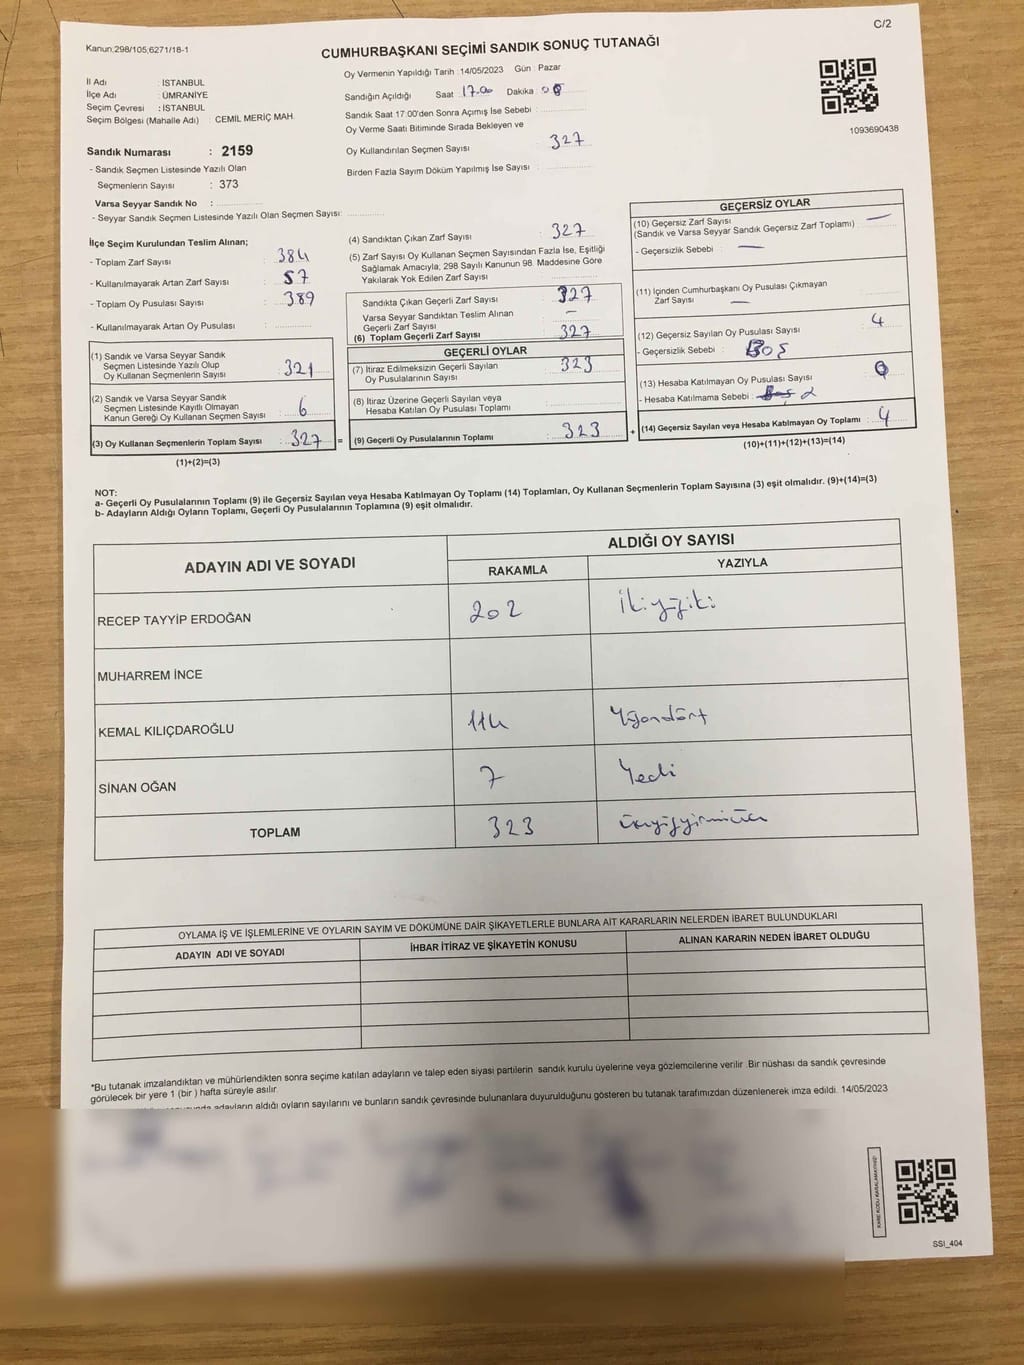 C/2
Kanun;298/105,6271/18-1
CUMHURBAŞKANI SEÇİMİ SANDIK SONUÇ TUTANAĞI
İl Adı : İSTANBUL
İlçe Adı : ÜMRANİYE
Seçim Çevresi : İSTANBUL
Seçim Bölgesi (Mahalle Adı) : CEMİL MERİÇ MAH.
Sandık Numarası : 2159
- Sandık Seçmen Listesinde Yazılı Olan
Seçmenlerin Sayısı : 373
Varsa Seyyar Sandık No :
- Seyyar Sandık Seçmen Listesinde Yazılı Olan Seçmen Sayısı:
Oy Vermenin Yapıldığı Tarih :14/05/2023 Gün : Pazar
Sandığın Açıldığı Saat :17.00 Dakika :
Sandık Saat 17:00'den Sonra Açımış İse Sebebi :
Oy Verme Saati Bitiminde Sırada Bekleyen ve
Oy Kullandırılan Seçmen Sayısı : 327
Birden Fazla Sayım Döküm Yapılmış İse Sayısı :
1093690438
İlçe Seçim Kurulundan Teslim Alınan;
- Toplam Zarf Sayısı : 384
- Kullanılmayarak Artan Zarf Sayısı : 57
- Toplam Oy Pusulası Sayısı : 389
- Kullanılmayarak Artan Oy Pusulası :
(1) Sandık ve Varsa Seyyar Sandık
Seçmen Listesinde Yazılı Olup
Oy Kullanan Seçmenlerin Sayısı : 321
(2) Sandık ve Varsa Seyyar Sandık
Seçmen Listesinde Kayıtlı Olmayan
Kanun Gereği Oy Kullanan Seçmen Sayısı : 6
(3) Oy Kullanan Seçmenlerin Toplam Sayısı : 327 =
(1)+(2)=(3)
(4) Sandıktan Çıkan Zarf Sayısı : 327
(5) Zarf Sayısı Oy Kullanan Seçmen Sayısından Fazla İse, Eşitliği
Sağlamak Amacıyla, 298 Sayılı Kanunun 98. Maddesine Göre
Yakılarak Yok Edilen Zarf Sayısı :
Sandıkta Çıkan Geçerli Zarf Sayısı : 327
Varsa Seyyar Sandıktan Teslim Alınan
Geçerli Zarf Sayısı : —
(6) Toplam Geçerli Zarf Sayısı : 327
GEÇERLİ OYLAR
(7) İtiraz Edilmeksizin Geçerli Sayılan
Oy Pusulalarının Sayısı : 323
(8) İtiraz Üzerine Geçerli Sayılan veya
Hesaba Katılan Oy Pusulası Toplamı :
(9) Geçerli Oy Pusulalarının Toplamı : 323 +
GEÇERSİZ OYLAR
(10) Geçersiz Zarf Sayısı
(Sandık ve Varsa Seyyar Sandık Geçersiz Zarf Toplamı) : —
- Geçersizlik Sebebi : —
(11) İçinden Cumhurbaşkanı Oy Pusulası Çıkmayan
Zarf Sayısı : —
(12) Geçersiz Sayılan Oy Pusulası Sayısı : 4
- Geçersizlik Sebebi : BOŞ
(13) Hesaba Katılmayan Oy Pusulası Sayısı :
- Hesaba Katılmama Sebebi :
(14) Geçersiz Sayılan veya Hesaba Katılmayan Oy Toplamı : 4
(10)+(11)+(12)+(13)=(14)
NOT:
a- Geçerli Oy Pusulalarının Toplamı (9) ile Geçersiz Sayılan veya Hesaba Katılmayan Oy Toplamı (14) Toplamları, Oy Kullanan Seçmenlerin Toplam Sayısına (3) eşit olmalıdır. (9)+(14)=(3)
b- Adayların Aldığı Oyların Toplamı, Geçerli Oy Pusulalarının Toplamına (9) eşit olmalıdır.
ADAYIN ADI VE SOYADI ALDIĞI OY SAYISI
RAKAMLA YAZIYLA
RECEP TAYYİP ERDOĞAN 202 İkiyüziki
MUHARREM İNCE
KEMAL KILIÇDAROĞLU 114 Yüzondört
SİNAN OĞAN 7 Yedi
TOPLAM 323 üçyüzyirmiüç
OYLAMA İŞ VE İŞLEMLERİNE VE OYLARIN SAYIM VE DÖKÜMÜNE DAİR ŞİKAYETLERLE BUNLARA AİT KARARLARIN NELERDEN İBARET BULUNDUKLARI
ADAYIN ADI VE SOYADI İHBAR İTİRAZ VE ŞİKAYETİN KONUSU ALINAN KARARIN NEDEN İBARET OLDUĞU
*Bu tutanak imzalandıktan ve mühürlendikten sonra seçime katılan adayların ve talep eden siyasi partilerin sandık kurulu üyelerine veya gözlemcilerine verilir. Bir nüshası da sandık çevresinde
görülecek bir yere 1 (bir ) hafta süreyle asılır.
adayların aldığı oyların sayılarını ve bunların sandık çevresinde bulunanlara duyurulduğunu gösteren bu tutanak tarafımızdan düzenlenerek imza edildi. 14/05/2023
KARE KODU KARALAMAYINIZ!
SSI_404